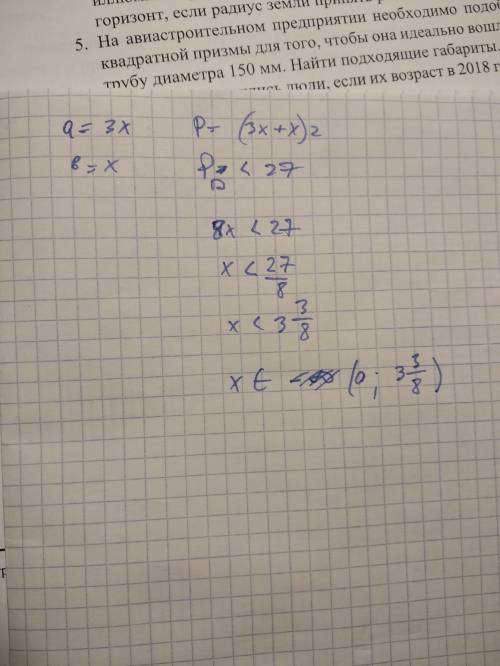 горизонт, если радиус земли
5. На авиастроительном предприятии необходимо подо
квадратной призмы для того, чтобы она идеально вош
трубу диаметра 150 мм. Найти подходящие габариты.
люди, если их возраст в 2018 г
a = 3x
P = (3x+x)2
в = x
P < 27
8x < 27
x < 27/8
x < 3 3/8
x ∈ (0; 3 3/8)